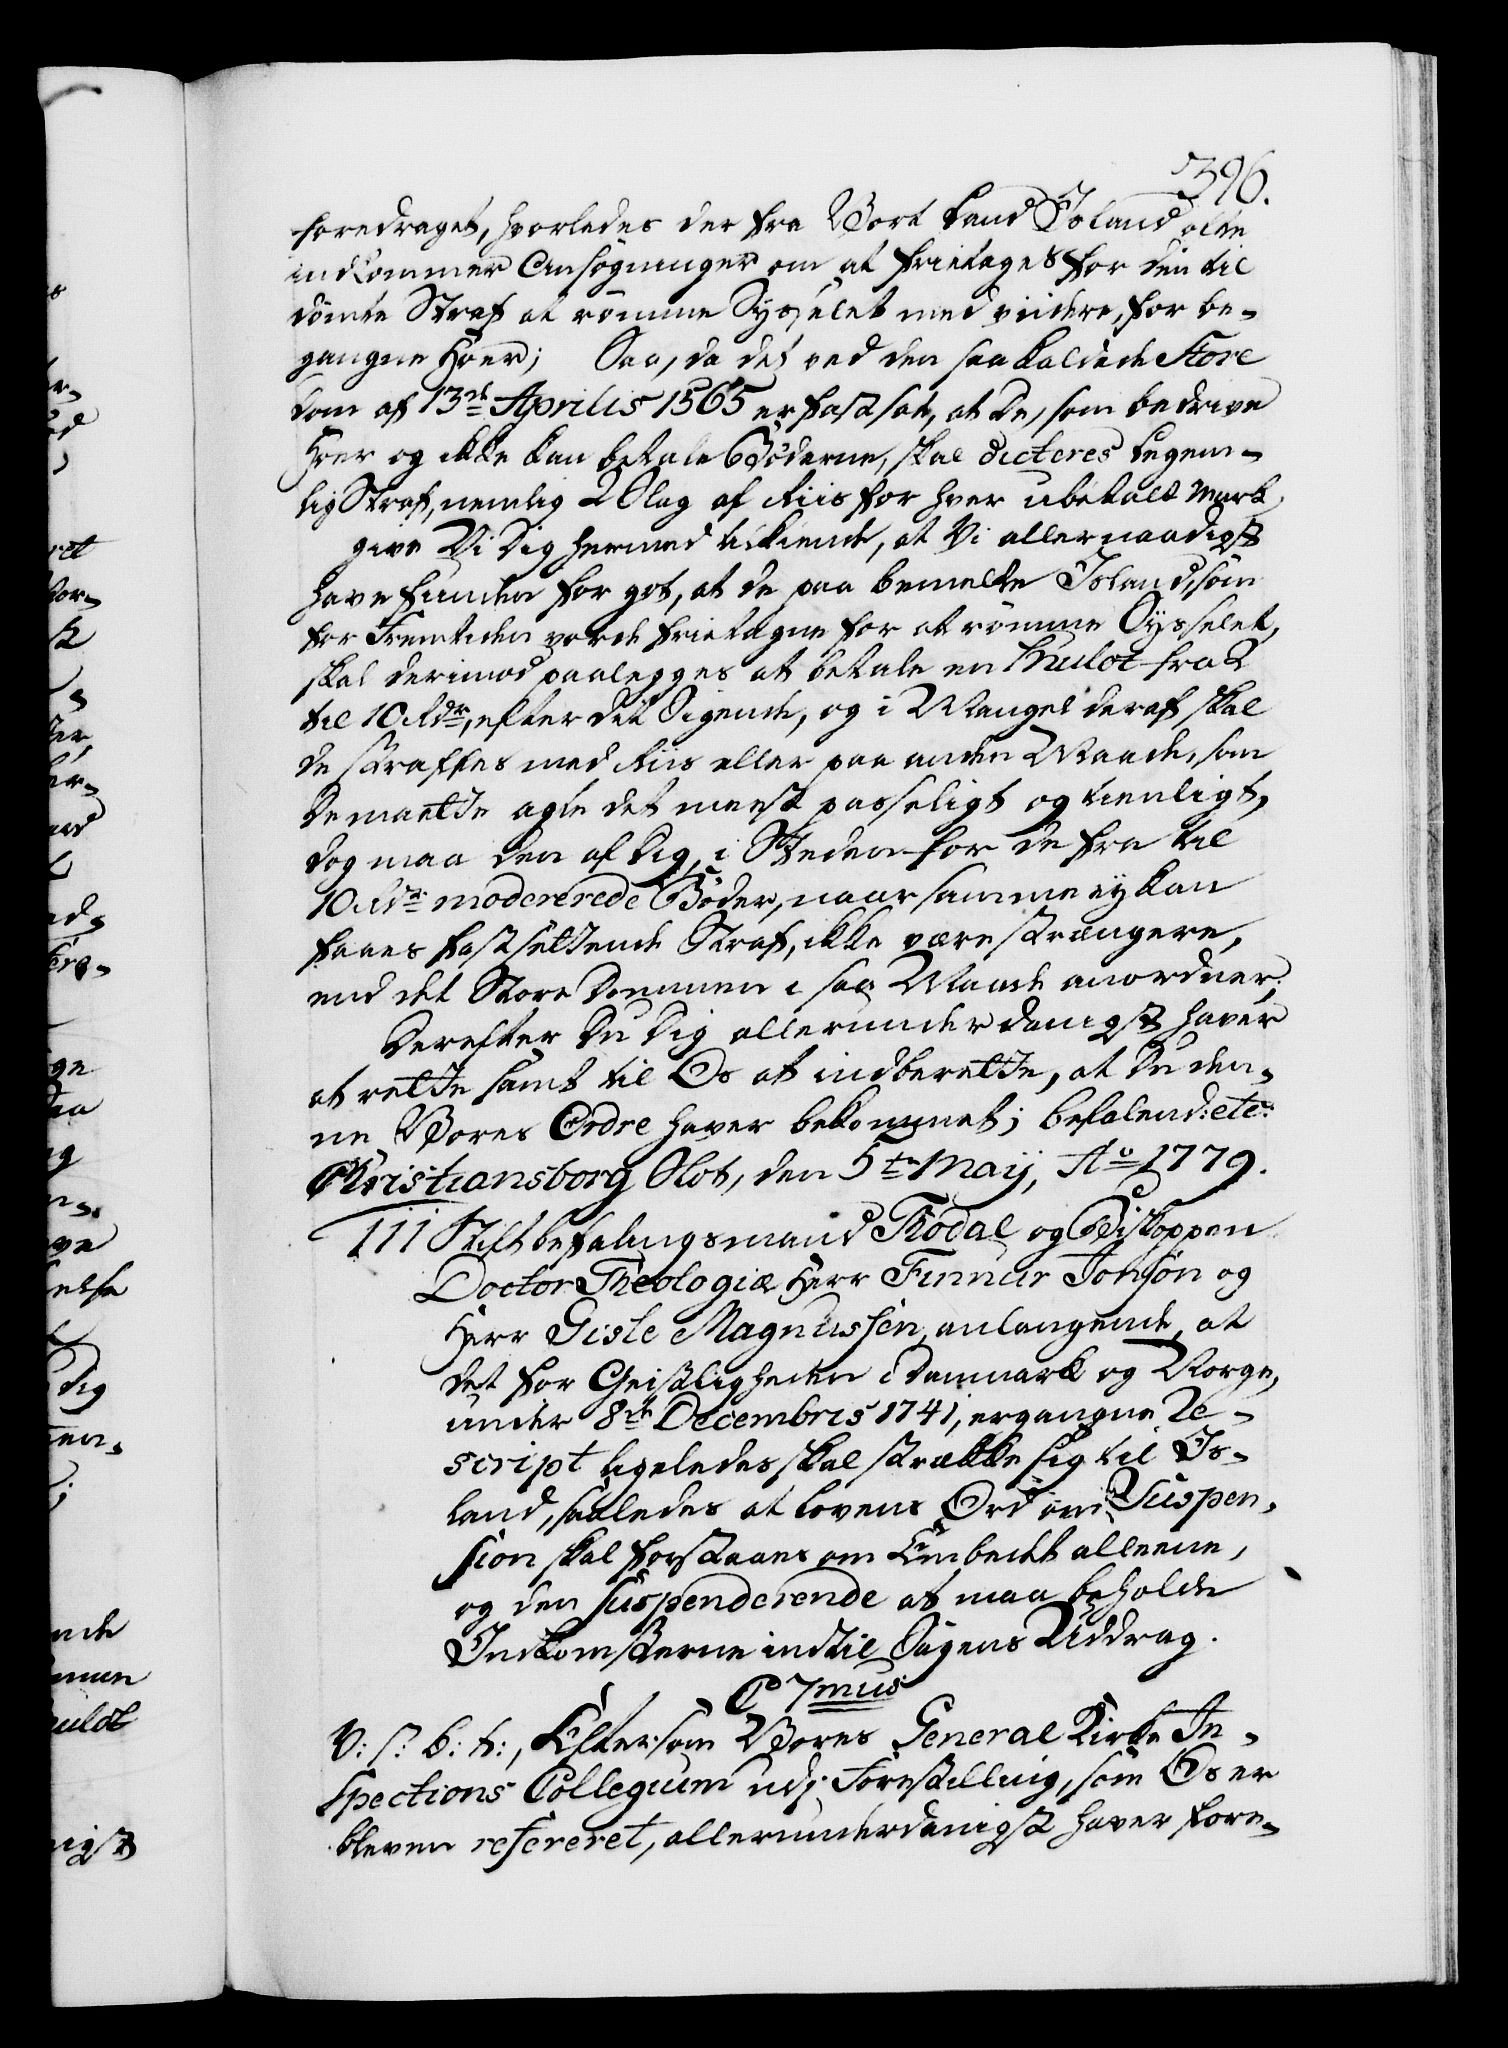 396.
foredraget, hvorledes der fra Vort Land Island ofte
indkommer Ansøgninger om at frietages for den til
dömte Straf at römme Sysselet med viidere, for be-
gangne Hoer; Saa, da det ved den saa kaldede Store
dom af 13de Aprilis 1565 er fastsat, at de, som bedrive
Hoer og ikke kan betale Bøderne, skal dicteres legem-
lig Straf, nemlig 2 Slag af Riis for hver ubetalt Mark,
give Vi Dig hermed tilkiende, at Vi allernaadigst
have funden for got, at de paa bemelte Island, som
for Fremtiden vorde frietagne for at römme Sysselet,
skal derimod paalegges at betale en Mulct fra 2
til 10 Rdr, efter dit Sigende, og i Mangel deraf skal
de straffes med Riis eller paa anden Maade, som
De maatte agte det meest passeligt og tienligt,
dog maa den af Dig, i Steden for de fra til
10 Rdr modererede Bøder, naar samme ey kan
faaes fastsættende Straf, ikke være strængere,
end det Store Dommen i saa Maade anordner;
Derefter Du Dig allerunderdanigst haver
at rette samt til Os at indberette, at Du den-
ne Vores Ordre haver bekommet; befalend: etc:
Christiansborg Slot, den 5te Maij, Ao 1779.
111 Stiftbefalingsmand Thodal og Biskoppen
Doctor Theologiæ Herr Finnur Jonsøn og
Herr Gisle Magnussen, anlangende, at
det for Geistligheden i Danmark og Norge,
under 8de Decembris 1741, ergangne Re-
script ligeledes skal strække sig til Is-
land, saaledes at Lovens Ord om Suspen-
sion skal forstaaes om Embedet alleene,
og den suspenderende at maa beholde
Indkomsterne indtil Sagens Uddrag.
C 7mus
V: S: b: t:, Eftersom Vores General Kirke In-
spections Collegium udj Forestilling, som Os er
bleven refereret, allerunderdanigst haver fore-